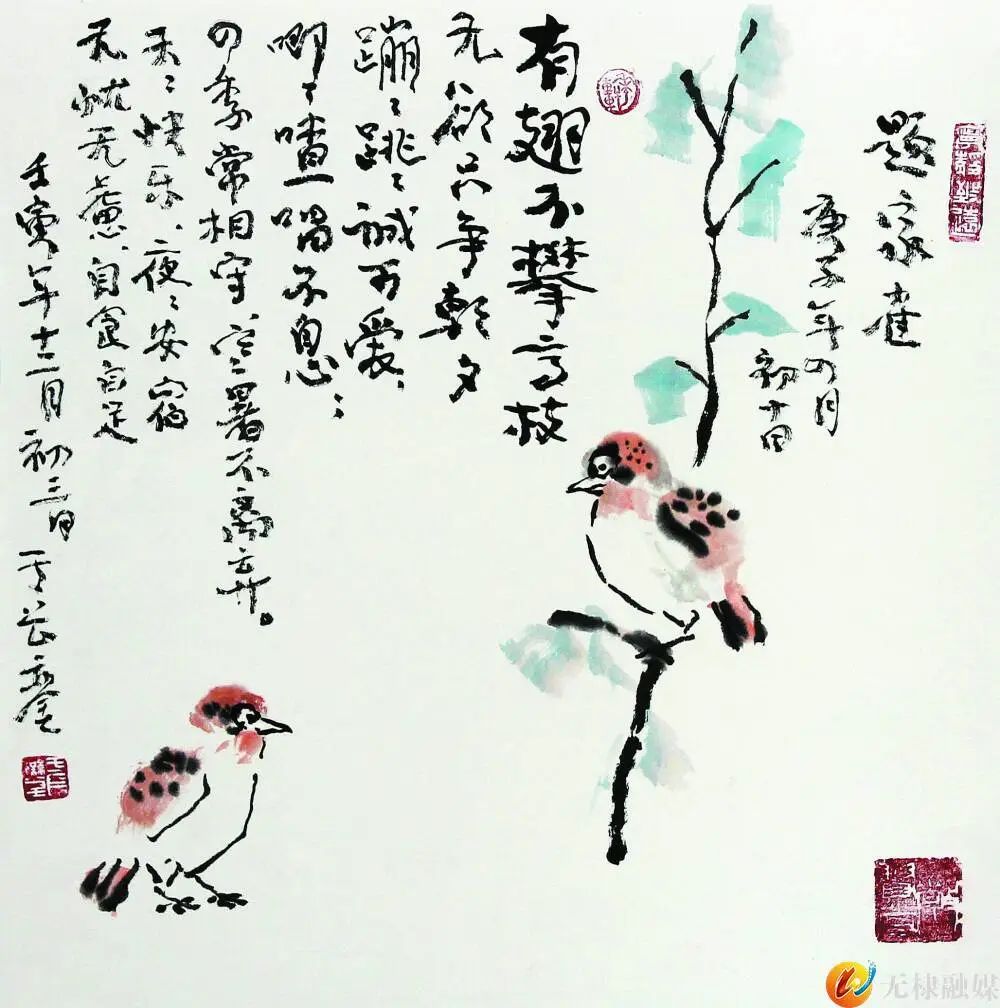 题家雀
庚子年四月
初十日
有翅不攀高枝
无欲只争朝夕
蹦蹦跳跳诚可爱、
唧唧喳喳唱不息；
四季常相守、寒暑不离弃。
天天快乐、夜夜安宿
无忧无虑、自富自足
壬寅年十二月初三日
无棣融媒